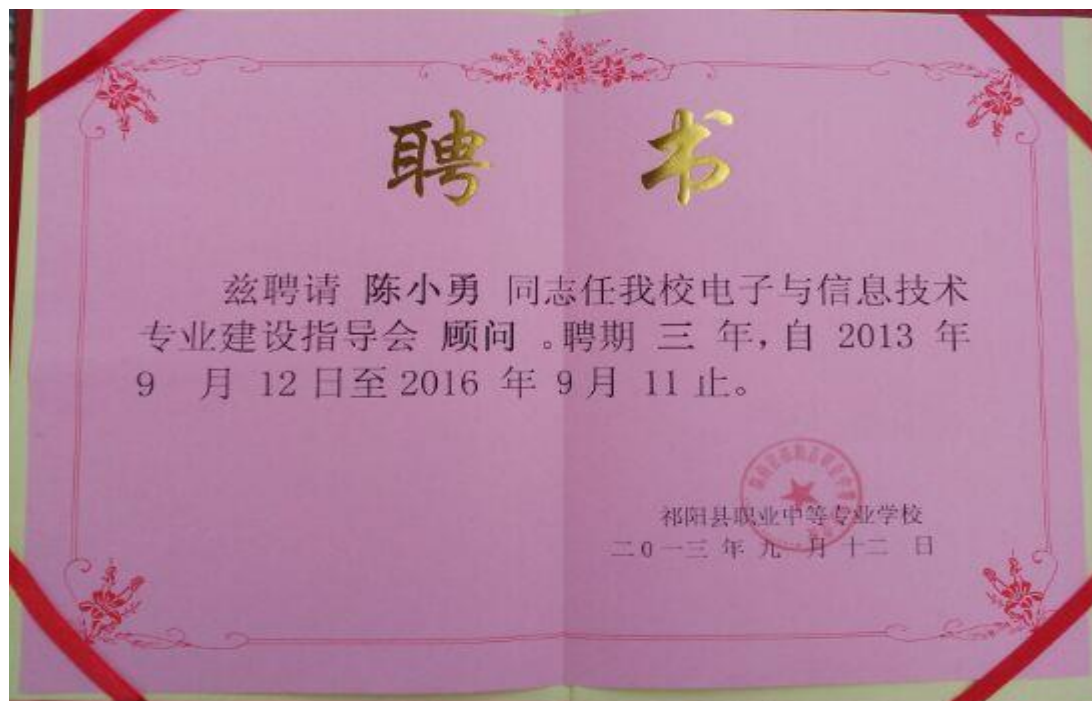 聘 书
兹聘请 陈小勇 同志任我校电子与信息技术
专业建设指导会 顾问 。聘期 三 年,自 2013 年
9 月 12 日至 2016 年 9 月 11 止。
祁阳县职业中等专业学校
二0一三 年 九 月 十二 日